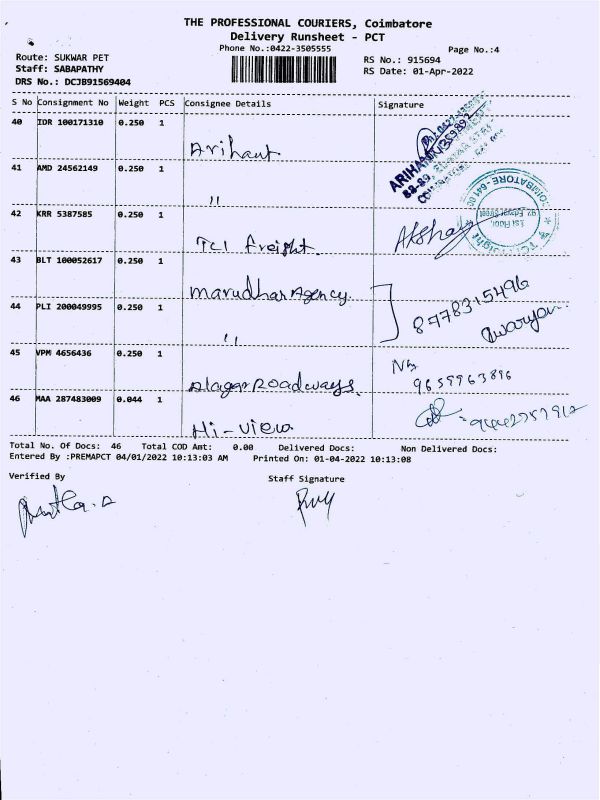 THE PROFESSIONAL COURIERS, Coimbatore
Delivery Runsheet - PCT
Phone No.:0422-3505555
Page No.:4
Route: SUKWAR PET
RS No.: 915694
Staff: SABAPATHY
RS Date: 01-Apr-2022
DRS No.: DCJB91569404
S No Consignment No Weight PCS Consignee Details Signature
40 IDR 100171310 0.250 1
Arihant
41 AMD 24562149 0.250 1
"
42 KRR 5387585 0.250 1
TCI freight. Akshay
43 BLT 100052617 0.250 1
Marudhar Agency. 8778315496
44 PLI 200049995 0.250 1
"
45 VPM 4656436 0.250 1
Alagar Roadways. 9659963896
46 MAA 287483009 0.044 1
Hi-view
Total No. Of Docs: 46 Total COD Amt: 0.00 Delivered Docs: Non Delivered Docs:
Entered By :PREMAPCT 04/01/2022 10:13:03 AM Printed On: 01-04-2022 10:13:08
Verified By Staff Signature